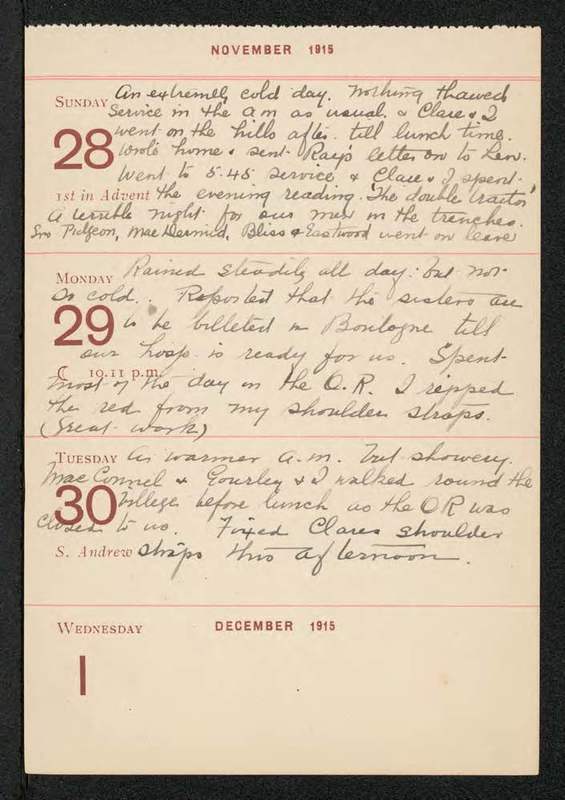 NOVEMBER 1915
SUNDAY An extremely cold day. Nothing thawed
Service in the a m as usual. & Clare & I
28 went on the hills after till lunch time.
Wrote home & sent Ray's letter on to Len.
Went to 5.45 service & Clare & I spent
1st in Advent the evening reading. "The double traitor"
A terrible night for our men in the trenches.
Srs Pidgeon, MacDiarmid, Bliss & Eastwood went on leave
MONDAY Rained steadily all day: but not
so cold. Reported that the sisters are
29 to be billeted in Boulogne till
our hosp. is ready for us. Spent
☾ 10.11 p.m.
most of the day in the O.R. I ripped
the red from my shoulder straps.
(Great work)
TUESDAY As warmer a.m. but showery.
MacConnel & Gourley & I walked round the
30 village before lunch as the OR was
closed to us. Fixed Clares shoulder
S. Andrew straps this afternoon.
WEDNESDAY DECEMBER 1915
1